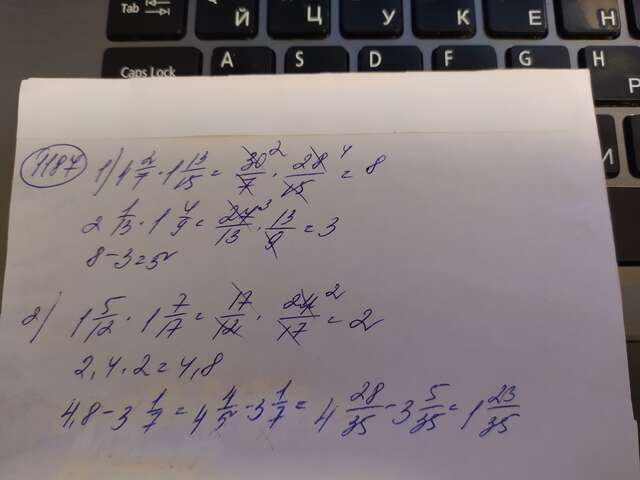 Tab Й Ц У К Е Н
Caps Lock A S D F G H Р
И
1187 1) 4 2/7 · 1 13/15 = 30²/7 · 28⁴/15 = 8
2 1/13 · 1 4/9 = 27³/13 · 13/9 = 3
8 - 3 = 5
2) 1 5/12 · 1 7/17 = 17/12 · 24²/17 = 2
2,4 · 2 = 4,8
4,8 - 3 1/7 = 4 4/5 - 3 1/7 = 4 28/35 - 3 5/35 = 1 23/35